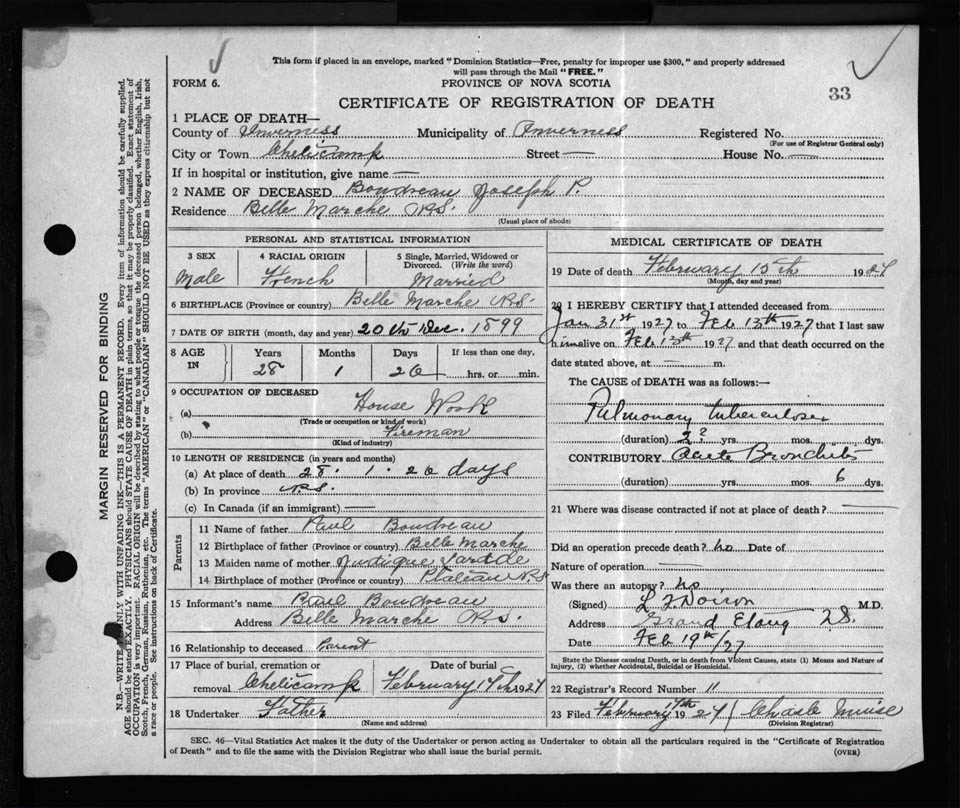 This form if placed in an envelope, marked "Dominion Statistics—Free, penalty for improper use $300," and properly addressed
will pass through the Mail "FREE."
FORM 6.
PROVINCE OF NOVA SCOTIA
33
CERTIFICATE OF REGISTRATION OF DEATH
1 PLACE OF DEATH—
County of Inverness Municipality of Inverness Registered No.
(For use of Registrar General only)
City or Town Cheticamp Street — House No. —
If in hospital or institution, give name —
2 NAME OF DECEASED Boudreau Joseph P.
Residence Belle Marche N.S.
(Usual place of abode)
PERSONAL AND STATISTICAL INFORMATION
3 SEX 4 RACIAL ORIGIN 5 Single, Married, Widowed or
Divorced. (Write the word)
Male French Married
6 BIRTHPLACE (Province or country) Belle Marche N.S.
7 DATE OF BIRTH (month, day and year) 20th Dec. 1899
8 AGE IN Years Months Days If less than one day,
28 1 26 hrs. or min.
9 OCCUPATION OF DECEASED
(a) House Work
(Trade or occupation or kind of work)
(b) Fireman
(Kind of industry)
10 LENGTH OF RESIDENCE (in years and months)
(a) At place of death 28. 1. 26 days
(b) In province N.S.
(c) In Canada (if an immigrant) —
Parents
11 Name of father Paul Boudreau
12 Birthplace of father (Province or country) Belle Marche
13 Maiden name of mother
14 Birthplace of mother (Province or country) Plateau N.S
15 Informant's name Paul Boudreau
Address Belle Marche N.S.
16 Relationship to deceased Parent
17 Place of burial, cremation or Date of burial
removal Cheticamp February 17th 1927
18 Undertaker Father
(Name and address)
MEDICAL CERTIFICATE OF DEATH
19 Date of death February 15th 1927
(Month, day and year)
20 I HEREBY CERTIFY that I attended deceased from
Jan 31st 1927 to Feb 13th 1927 that I last saw
him alive on Feb 13th 1927 and that death occurred on the
date stated above, at — m.
The CAUSE of DEATH was as follows:—
Pulmonary tuberculosis
(duration) 2? yrs. mos. dys.
CONTRIBUTORY Acute Bronchitis
(duration) yrs. mos. 6 dys.
21 Where was disease contracted if not at place of death? —
Did an operation precede death? no Date of
Nature of operation —
Was there an autopsy? no
(Signed) L. J. Doiron M.D.
Address Grand Etang N.S.
Date Feb 19th/27
State the Disease causing Death, or in death from Violent Causes, state (1) Means and Nature of
Injury, (2) whether Accidental, Suicidal or Homicidal.
22 Registrar's Record Number 11
23 Filed February 17th 1927
(Division Registrar)
SEC. 46—Vital Statistics Act makes it the duty of the Undertaker or person acting as Undertaker to obtain all the particulars required in the "Certificate of Registration
of Death" and to file the same with the Division Registrar who shall issue the burial permit.
(OVER)
MARGIN RESERVED FOR BINDING
N.B.—WRITE PLAINLY WITH UNFADING INK—THIS IS A PERMANENT RECORD. Every item of information should be carefully supplied.
AGE should be stated EXACTLY. PHYSICIANS should STATE CAUSE OF DEATH in plain terms, so that it may be properly classified. Exact statement of
OCCUPATION is very important. RACIAL ORIGIN will be described by stating to what people or tongue the deceased person belonged, whether English, Irish,
Scotch, French, German, Russian, Ruthenian, etc. The terms "AMERICAN" or "CANADIAN" SHOULD NOT BE USED as they express citizenship but not
a race or people. See instructions on back of Certificate.